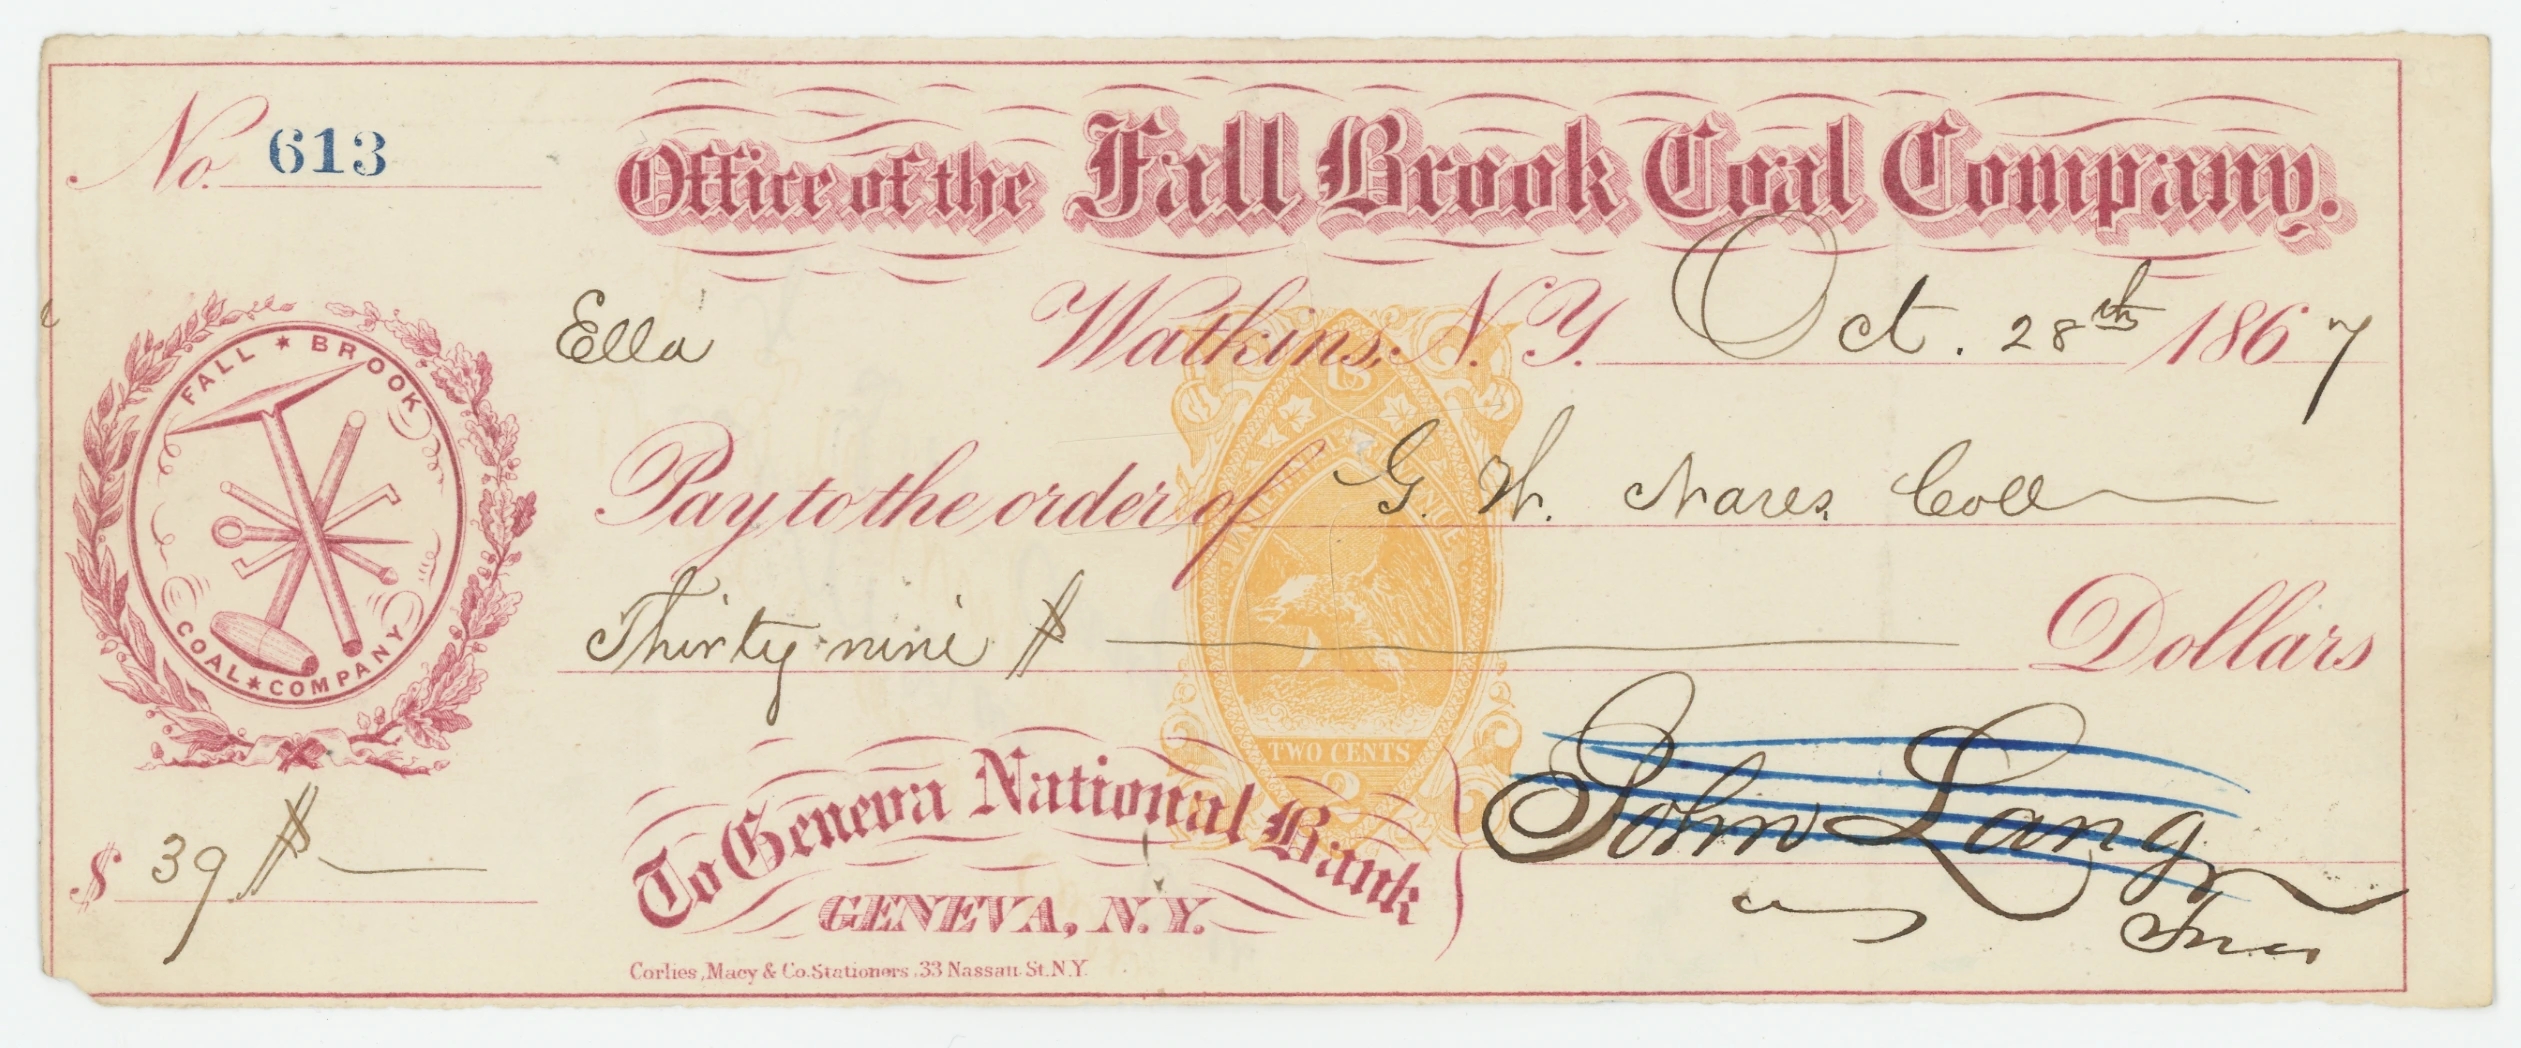 No. 613
Office of the Fall Brook Coal Company.
Ella
Watkins, N.Y. Oct. 28th 1867
FALL ★ BROOK
COAL ★ COMPANY
US
INTERNAL REVENUE
Pay to the order of G. W. Nares Coll
Thirty nine $ Dollars
TWO CENTS
2
$ 39
To Geneva National Bank
GENEVA, N.Y.
John Lang
Corlies, Macy & Co. Stationers, 33 Nassau St. N.Y.